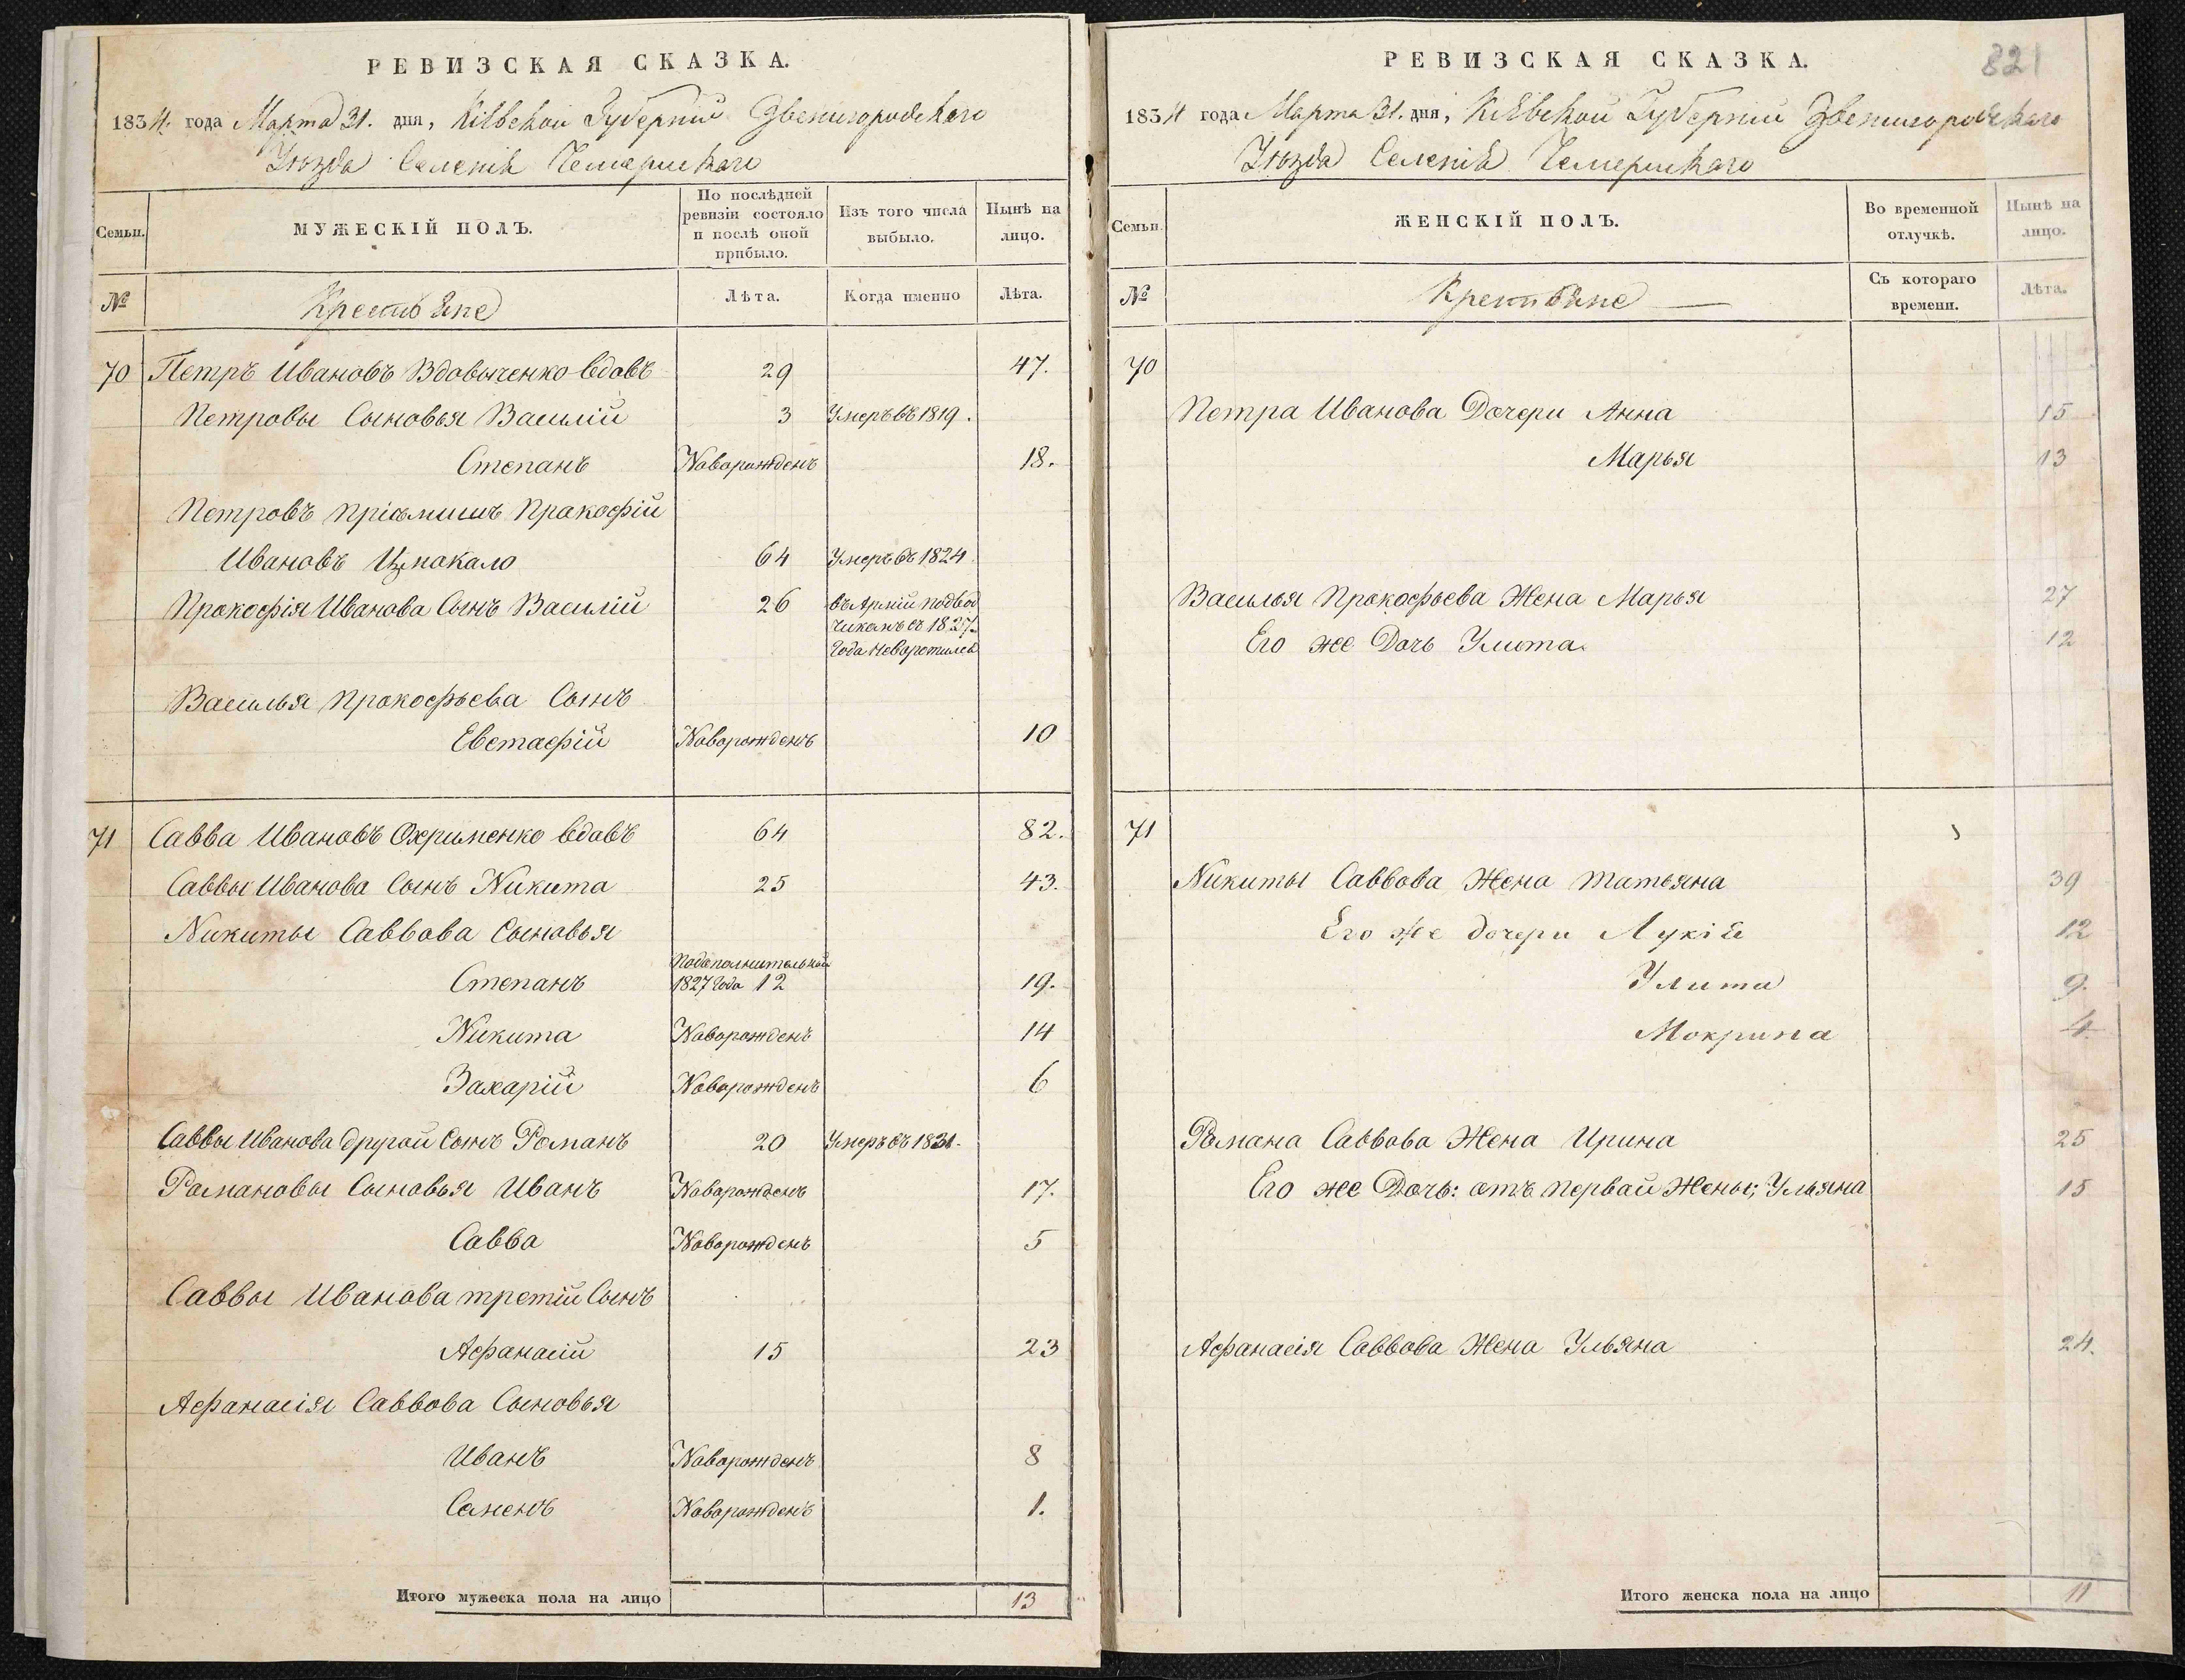 РЕВИЗСКАЯ СКАЗКА.
1834. года Марта 31. дня, Кіевской Губерніи Звенигородскаго
Уѣзда Селенія Чемерискаго
Семьи.
МУЖЕСКІЙ ПОЛЪ.
По послѣдней ревизіи состояло и послѣ оной прибыло.
Изъ того числа выбыло.
Нынѣ на лицо.
№
Крестьяне
Лѣта.
Когда именно
Лѣта.
70 Петръ Ивановъ Вдовыченко вдовъ 29 47.
Петровы Сыновья Василій 3 Умеръ въ 1819.
Степанъ Новорожденъ 18.
Петровъ пріемышъ Прокофій
Ивановъ 64 Умеръ въ 1824
Прокофія Иванова Сынъ Василій 26 въ Арміи подвод
чикомъ съ 1827.
Года невороτился
Василья Прокофьева Сынъ
Евстафій Новорожденъ 10
71 Савва Ивановъ Охрименко вдовъ 64 82.
Саввы Иванова Сынъ Никита 25 43.
Никиты Саввова Сыновья
Степанъ Подополнительной
1827 Года 12 19.
Никита Новорожденъ 14
Захарій Новорожденъ 6
Саввы Иванова другой Сынъ Романъ 20 Умеръ въ 1831.
Романовы Сыновья Иванъ Новорожденъ 17.
Савва Новорожденъ 5
Саввы Иванова третій Сынъ
Афанасій 15 23
Афанасія Саввова Сыновья
Иванъ Новорожденъ 8
Семенъ Новорожденъ 1.
Итого мужеска пола на лицо 13
РЕВИЗСКАЯ СКАЗКА.
821
1834 года Марта 31. дня, Кіевской Губерніи Звенигородскаго
Уѣзда Селенія Чемерискаго
Семьи.
ЖЕНСКІЙ ПОЛЪ.
Во временной отлучкѣ.
Нынѣ на лицо.
№
Крестьяне
Съ котораго времени.
Лѣта.
70
Петра Иванова Дочери Анна 15
Марья 13
Василья Прокофьева Жена Марья 27
Его же Дочь Улита 12
71
Никиты Саввова Жена Татьяна 39
Его же дочери Лукія 12
Улита 9.
Мокрина 4.
Романа Саввова Жена Ирина 25
Его же Дочь: отъ первой Жены; Ульяна 15
Афанасія Саввова Жена Ульяна 24.
Итого женска пола на лицо 11